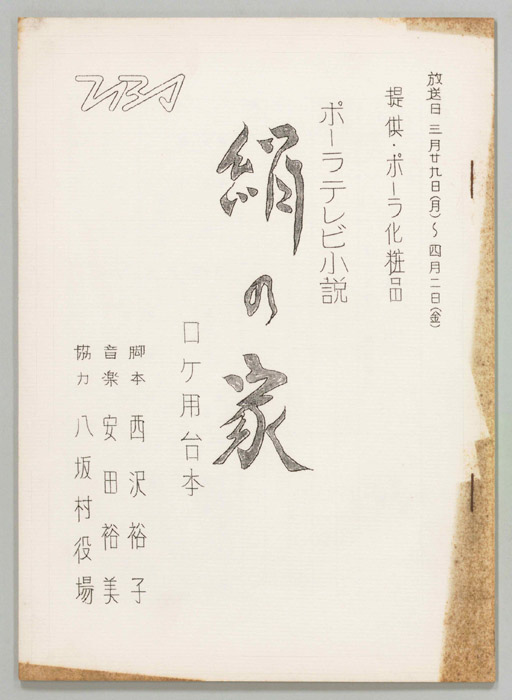 放送日 三月廿九日(月)~四月二日(金)
提供・ポーラ化粧品
ポーラテレビ小説
絹の家
ロケ用台本
脚本 西沢裕子
音楽 安田裕美
協力 八坂村役場
TBS